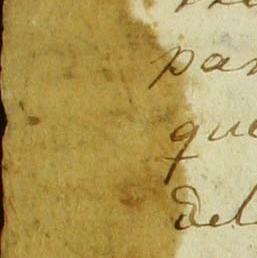 par
que
del